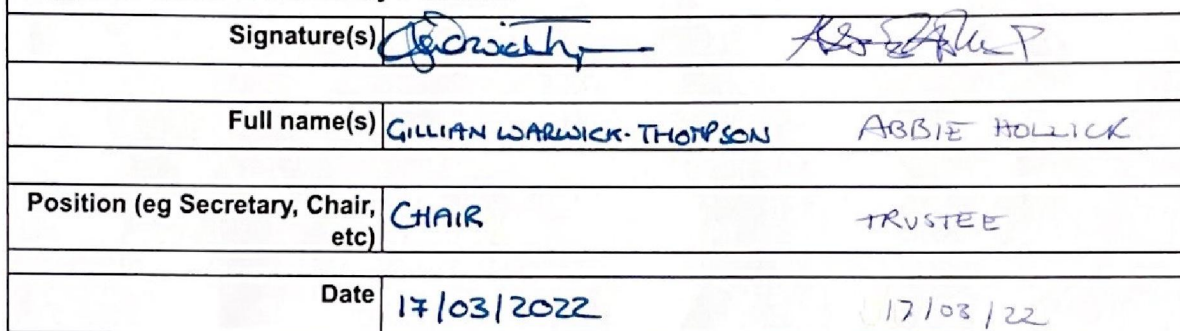 Signature(s)
Full name(s) GILLIAN WARWICK-THOMPSON ABBIE HOLLICK
Position (eg Secretary, Chair, etc) CHAIR TRUSTEE
Date 17/03/2022 17/03/22